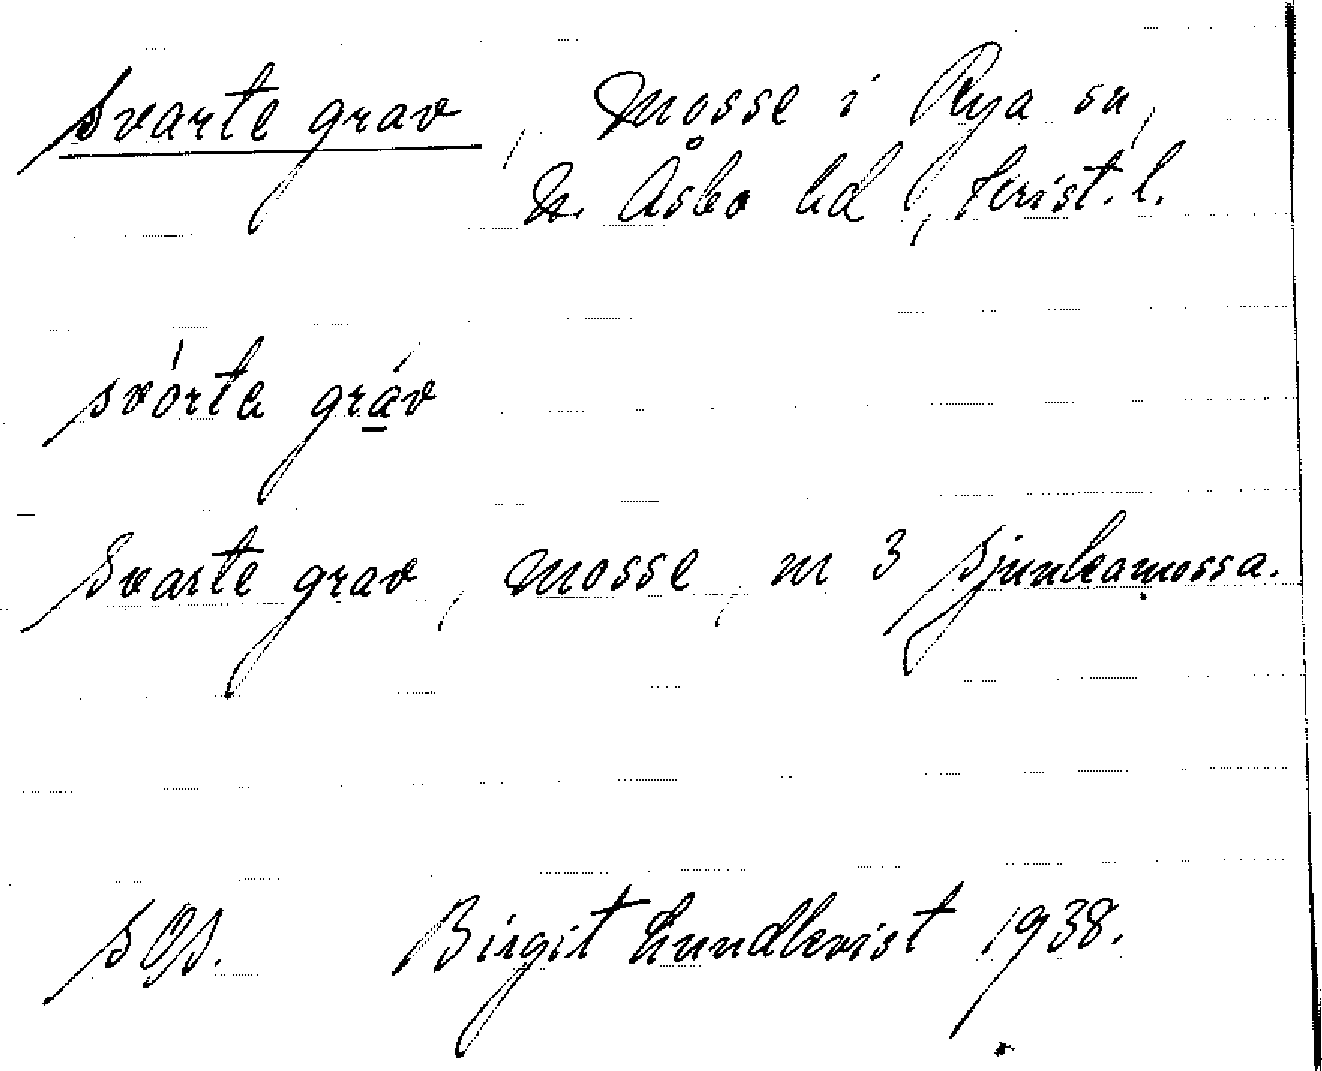 Svarte grav, Mosse i Rya sn,
N. Åsbo hd, Krist. l.
svórta gráv
Svarte grav, mosse, m 3 Sjunkamossa.
SOS. Birgit Lundkvist 1938.